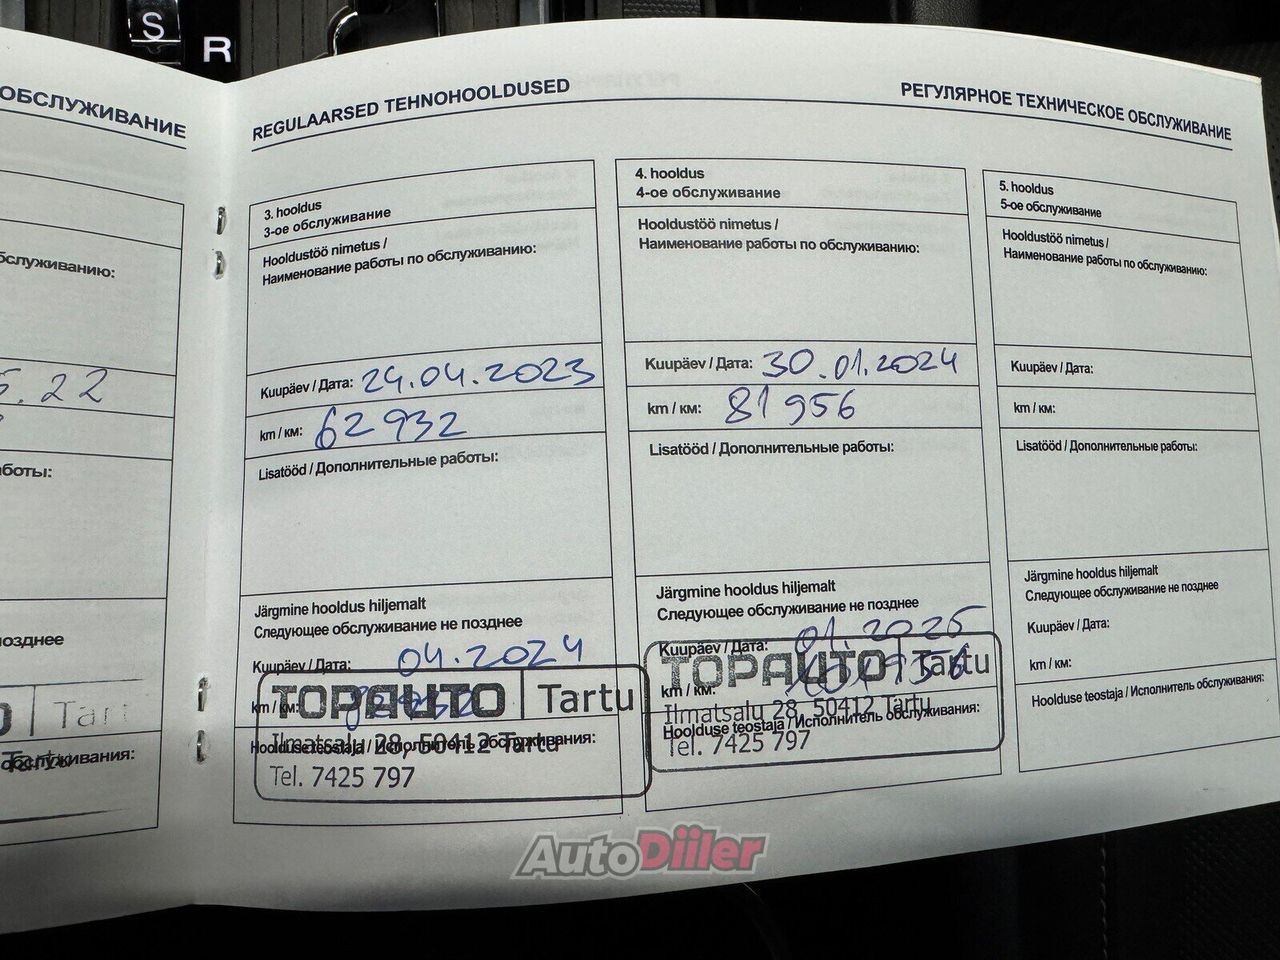 S
R
ОБСЛУЖИВАНИЕ
бслуживанию:
5.22
боты:
позднее
Tartu
Tartu
обслуживания:
REGULAARSED TEHNOHOOLDUSED
РЕГУЛЯРНОЕ ТЕХНИЧЕСКОЕ ОБСЛУЖИВАНИЕ
3. hooldus
3-ое обслуживание
Hooldustöö nimetus /
Наименование работы по обслуживанию:
Kuupäev / Дата: 24.04.2023
km / км: 62 932
Lisatööd / Дополнительные работы:
Järgmine hooldus hiljemalt
Следующее обслуживание не позднее
Kuupäev / Дата: 04.2024
km / км:
TOPAUTO | Tartu
Hoolduse teostaja / Исполнитель обслуживания:
Ilmatsalu 28, 50412 Tartu
Tel. 7425 797
4. hooldus
4-ое обслуживание
Hooldustöö nimetus /
Наименование работы по обслуживанию:
Kuupäev / Дата: 30.01.2024
km / км: 81 956
Lisatööd / Дополнительные работы:
Järgmine hooldus hiljemalt
Следующее обслуживание не позднее
Kuupäev / Дата: 01.2025
km / км:
TOPAUTO | Tartu
Ilmatsalu 28, 50412 Tartu
Hoolduse teostaja / Исполнитель обслуживания:
Tel. 7425 797
5. hooldus
5-ое обслуживание
Hooldustöö nimetus /
Наименование работы по обслуживанию:
Kuupäev / Дата:
km / км:
Lisatööd / Дополнительные работы:
Järgmine hooldus hiljemalt
Следующее обслуживание не позднее
Kuupäev / Дата:
km / км:
Hoolduse teostaja / Исполнитель обслуживания:
AutoDiiler